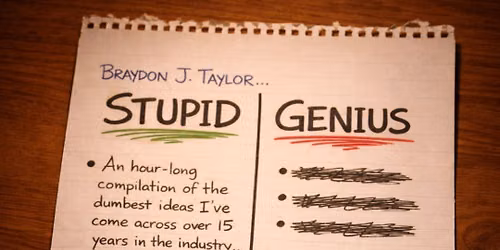 BRAYDON J. TAYLOR...
STUPID
GENIUS
• An hour-long
compilation of the
dumbest ideas I've
come across over 15
years in the industry...